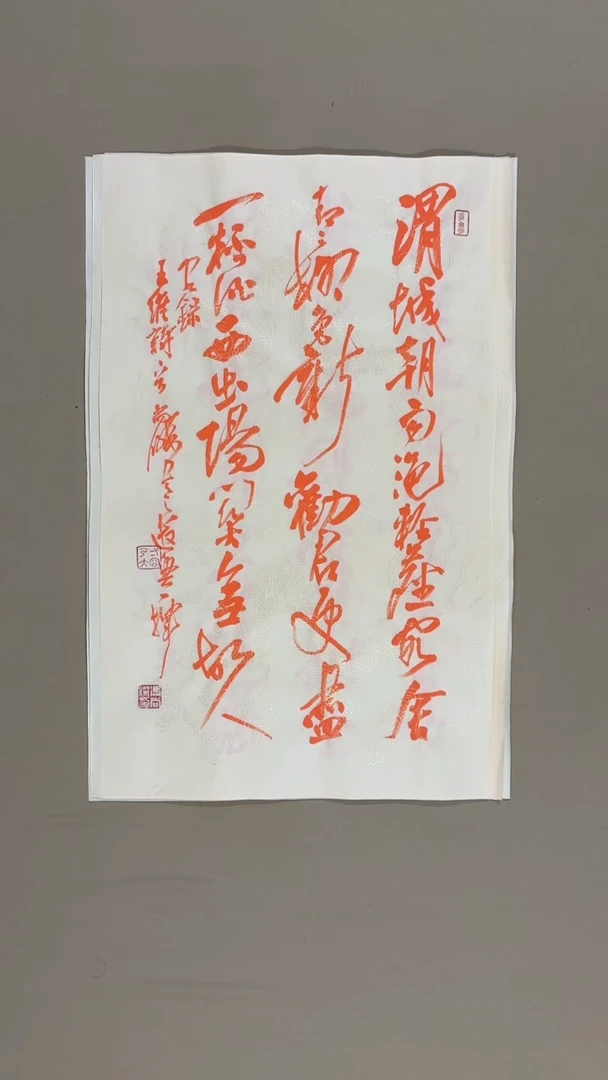 渭城朝雨浥輕塵客舍
青々柳色新勸君更盡
一杯酒西出陽關無故人
錄
王維詩